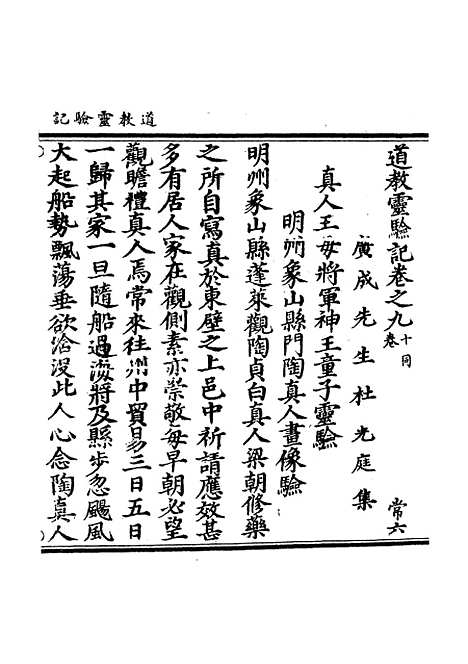 道教靈驗記
道教靈驗記卷之九 十卷同 常六
廣成先生杜光庭集
真人王母將軍神王童子靈驗
明州象山縣門陶真人畫像驗
明州象山縣蓬萊觀陶貞白真人梁朝修藥
之所自寫真於東壁之上邑中祈請應效甚
多有居人家在觀側素亦崇敬每早朝必望
觀瞻禮真人焉常來往州中貿易三日五日
一歸其家一旦隨船過海將及縣步忽颶風
大起船勢飄蕩垂欲淪沒此人心念陶真人